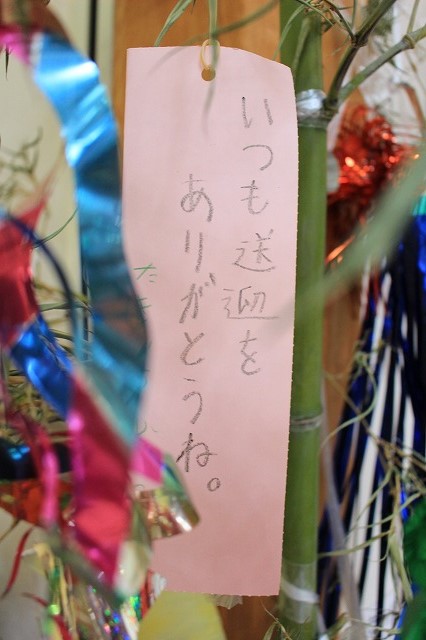 いつも送迎を
ありがとうね。